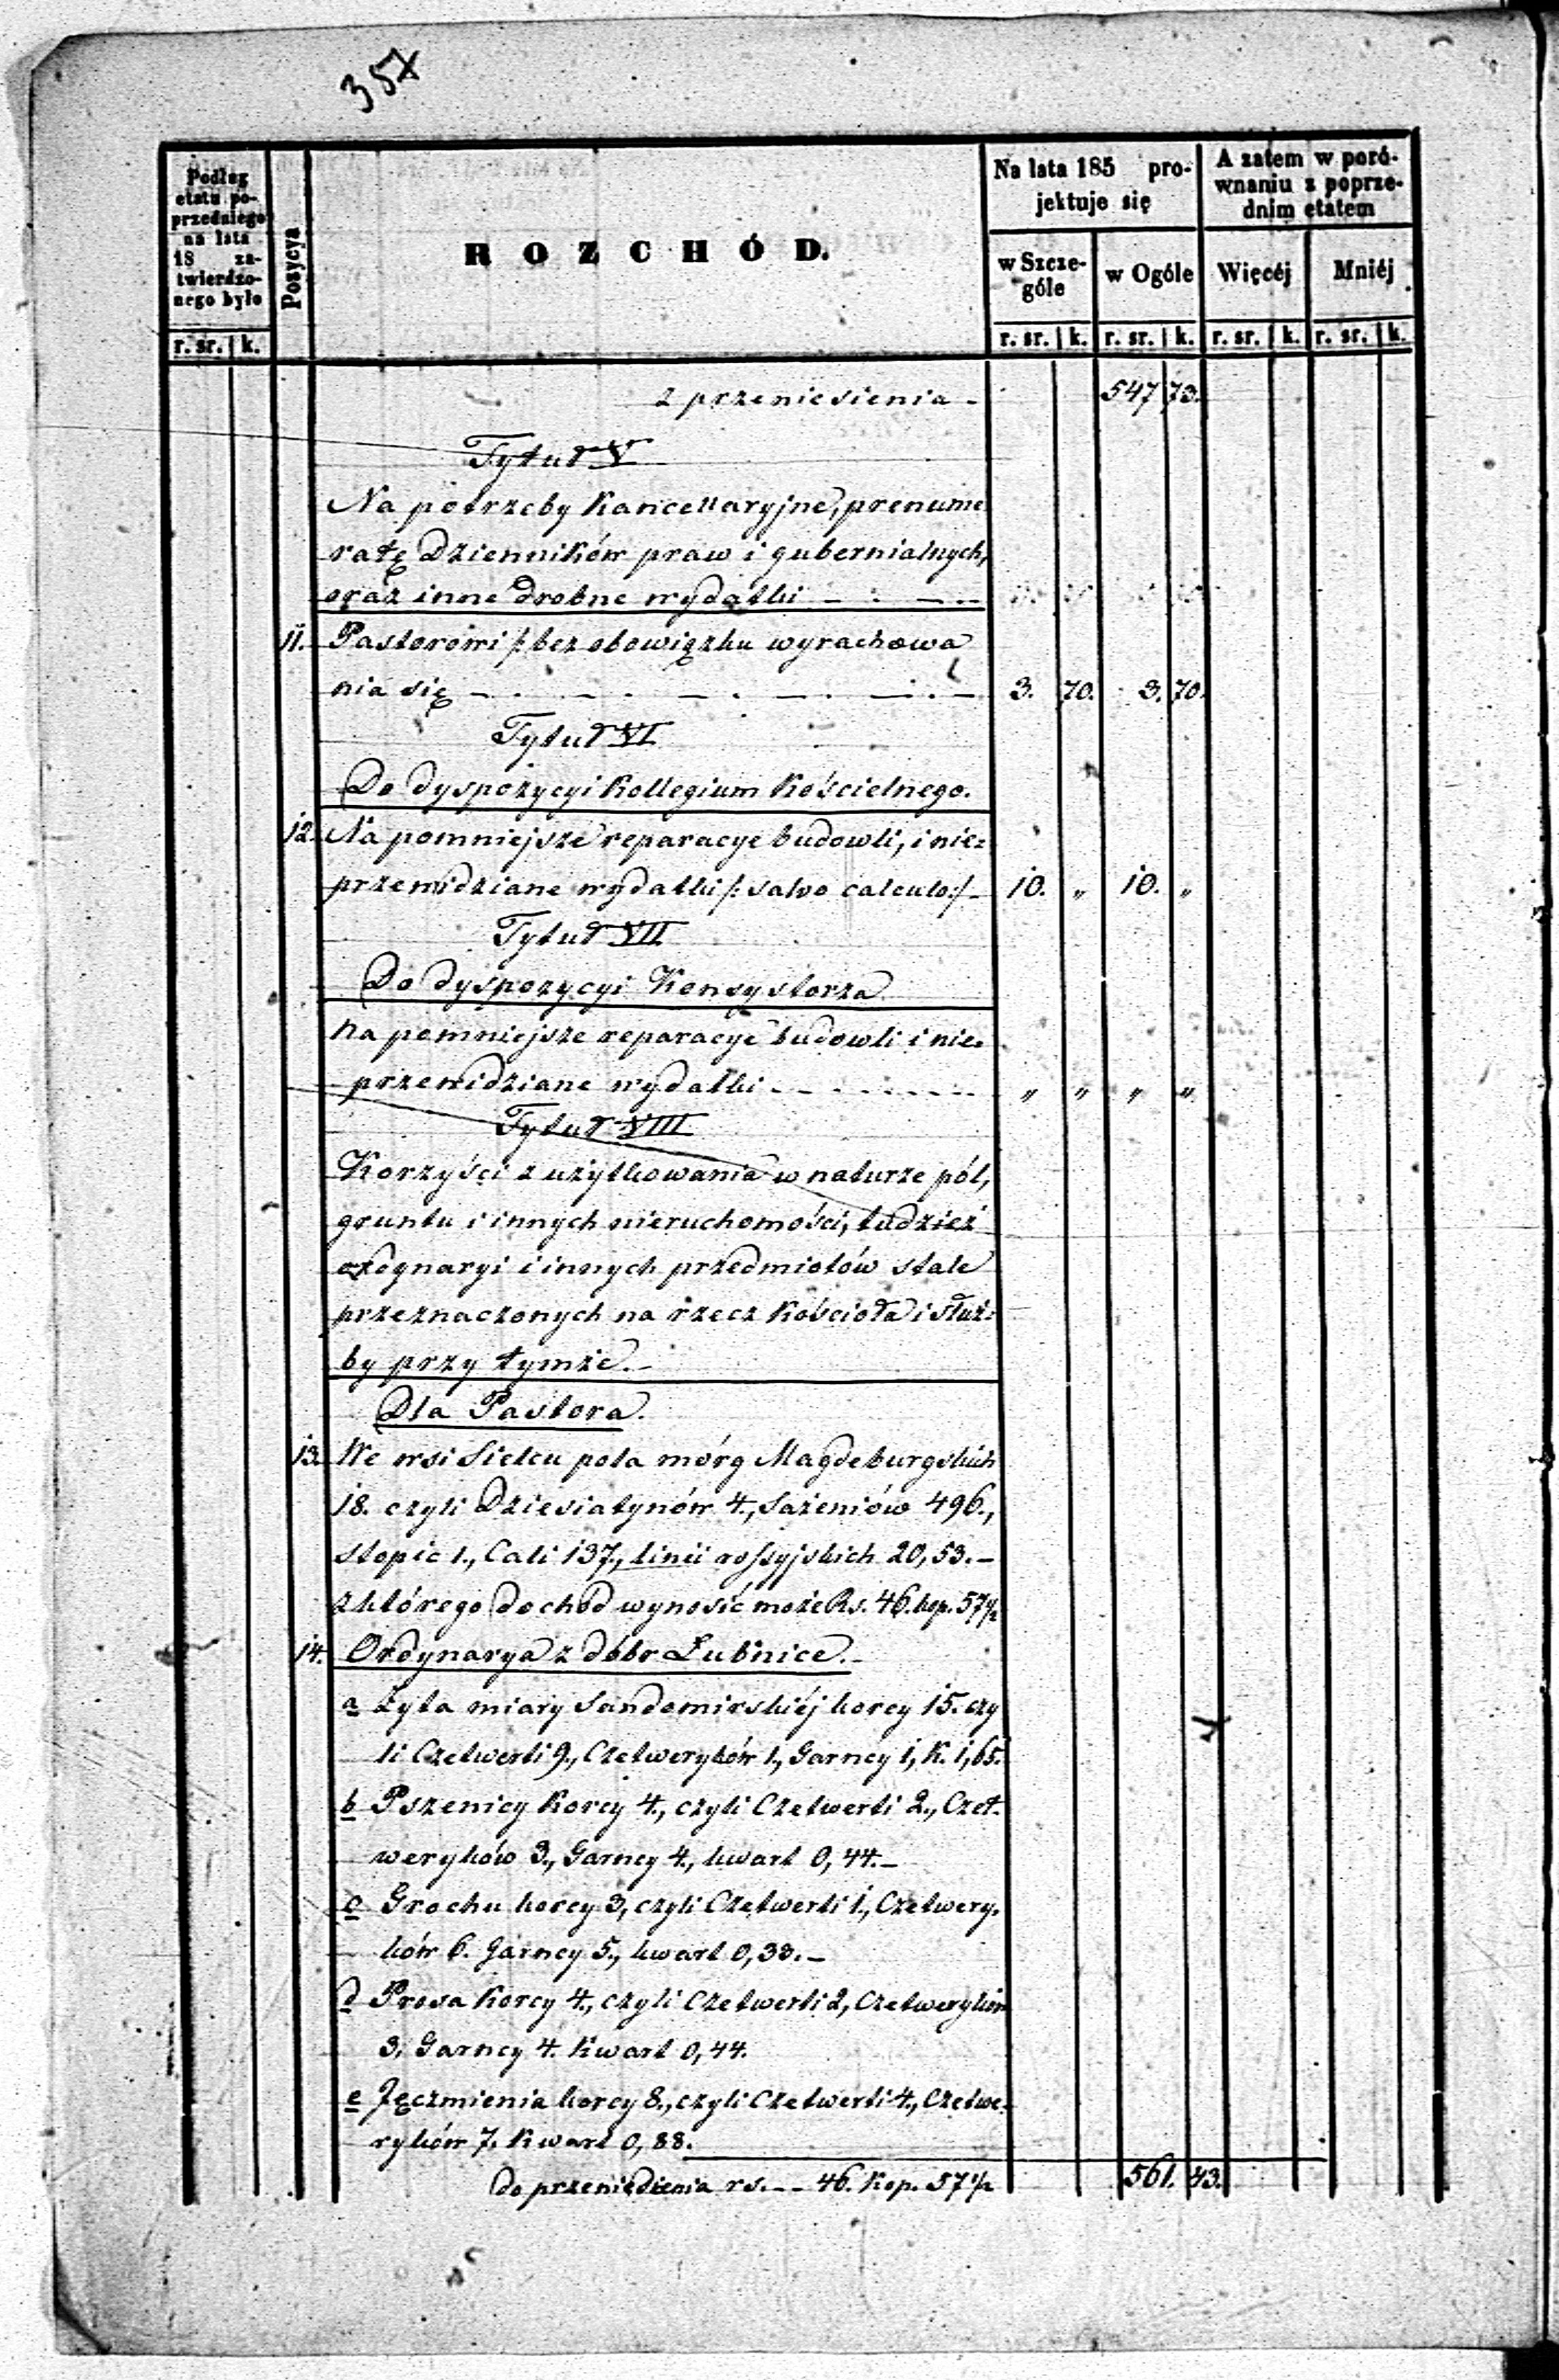 357
Podług
etatu po-
przedniego
na lata
18 za-
twierdzo-
nego było
r. sr. k.
Pozycya
ROZCHÓD.
Na lata 185 pro-
jektuje się
w Szcze-
góle
w Ogóle
r. sr. k. r. sr. k.
A zatem w poró-
wnaniu z poprze-
dnim etatem
Więcéj
Mniéj
r. sr. k. r. sr. k.
z przeniesienia - 547 73.
Tytuł V
Na potrzeby Kancellaryjne, prenume
ratę Dzienników praw i gubernialnych,
oraz inne drobne wydatki
11. Pastorowi /: bez obowiązku wyrachowa
nia się 3. 70. 3. 70.
Tytuł VI
Do dyspozycyi Kollegium Kościelnego.
12. Na pomniejsze reparacye budowli, i nie=
przewidziane wydatki /: salvo calculo :/ - 10. " 10. "
Tytuł VII
Do dyspozycyi Konsystorza
Na pomniejsze reparacye budowli i nie=
przewidziane wydatki " " " "
Tytuł VIII
Korzyści z użytkowania w naturze pól,
gruntu i innych nieruchomości, tudzież
ordynaryi i innych przedmiotów stale
przeznaczonych na rzecz Kościoła i służ=
by przy tymże. -
Dla Pastora.
13. We wsi Sielcu pola mórg Magdeburgskich
18. czyli Dziesiatynów 4., Sażeniów 496.,
stopie 1., Cali 137., linii rossyjskich 20,53. -
z którego dochód wynosić może Rs. 46. kop. 57½
14. Ordynarya z dóbr Łubnice. -
a Żyta miary Sandomirskiéj korcy 15. czy
li Czetwerti 9., Czetweryków 1., Garncy 1, K. 1,65.
b Pszenicy Korcy 4., czyli Czetwerti 2., Czet.
weryków 3., Garncy 4., kwart 0,44. -
c Grochu korcy 3, czyli Czetwerti 1., Czetwery.
ków 6. Garncy 5., kwart 0,33. -
d Prosa Korcy 4., czyli Czetwerti 2, Czetweryków
3, Garncy 4. Kwart 0,44.
e Jęczmienia korcy 8., czyli Czetwerti 4., Czetwe.
ryków 7. Kwart 0,88.
do przeniesienia rs. - - 46. Kop. 57½ 561. 43.